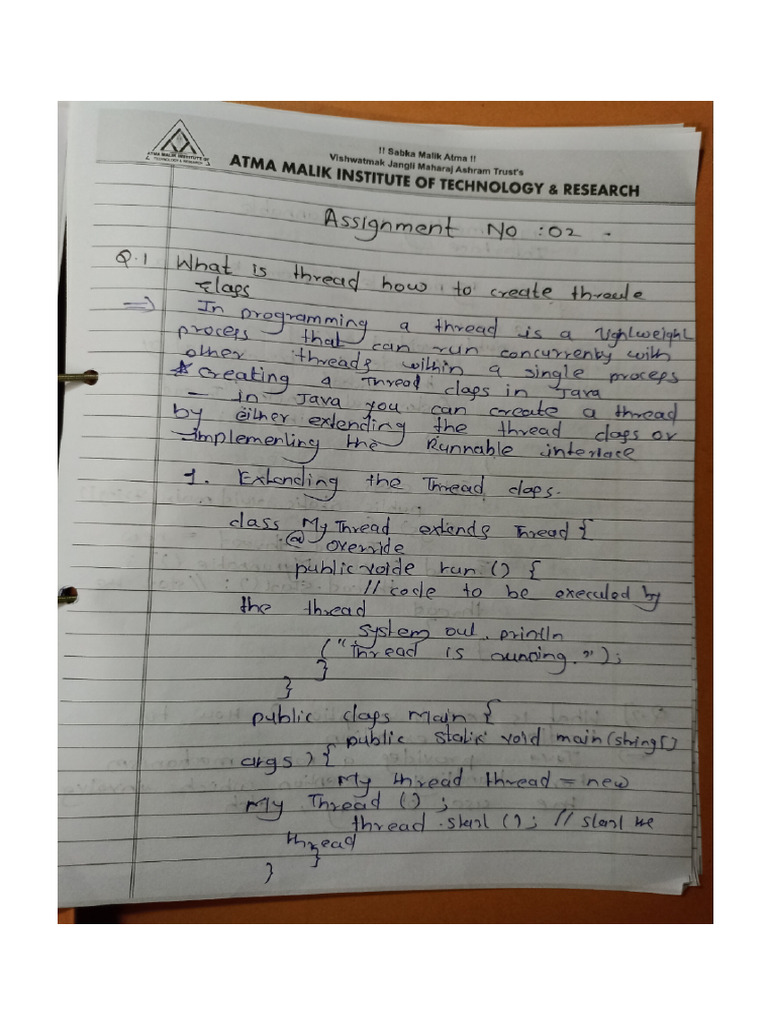 !! Sabka Malik Atma !!
Vishwatmak Jangli Maharaj Ashram Trust's
ATMA MALIK INSTITUTE OF TECHNOLOGY & RESEARCH
ATMA MALIK INSTITUTE OF
TECHNOLOGY & RESEARCH
Assignment No :02 .
Q.1 What is thread how to create
class
⇒ In programming a thread is a lightweight
process that can run concurrenty with
other threads within a single process
* Creating a Thread class in Java
- In Java you can create a thread
by either extending the thread class or
implementing the Runnable interface
1. Extending the Thread class.
class My Thread extends Thread {
@ override
public voide run () {
// code to be executed by
the thread
system out. println
("Thread is running.");
}
}
public class Main {
public static void main(string[]
args) {
My thread thread = new
My Thread () ;
thread .start (); // start the
thread
}
}